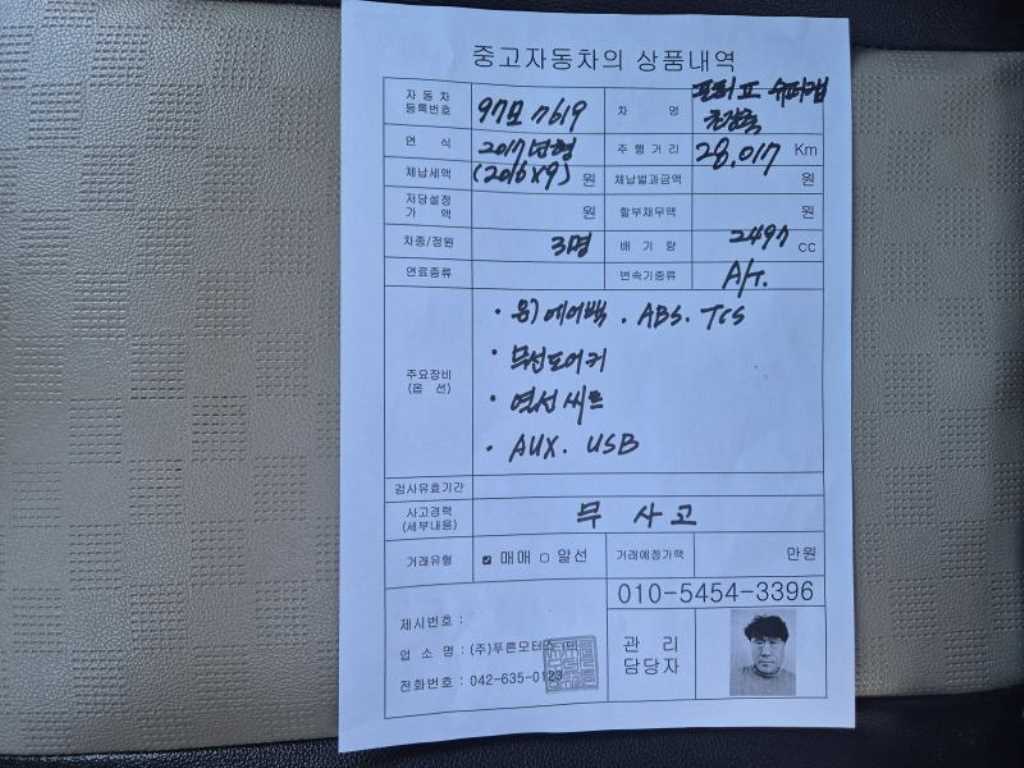 중고자동차의 상품내역
자동차 등록번호 97모 7619 차 명 포터Ⅱ 슈퍼캡 초장축
연 식 2017년형 주행거리 28,017 Km
체납세액 (2016X9) 원 체납범과금액 원
저당설정 가 액 원 할부채무액 원
차종/정원 3명 배 기 량 2497 cc
연료종류 변속기종류 A/T.
주요장비 (옵 션)
· 운)에어백 . ABS. TCS
· 무선도어키
· 열선씨트
· AUX. USB
검사유효기간
사고경력 (세부내용) 무 사고
거래유형 매매 알선 거래예정가액 만원
010-5454-3396
제시번호 :
업 소 명 : (주)푸른모터스
전화번호 : 042-635-0123
관 리 담당자